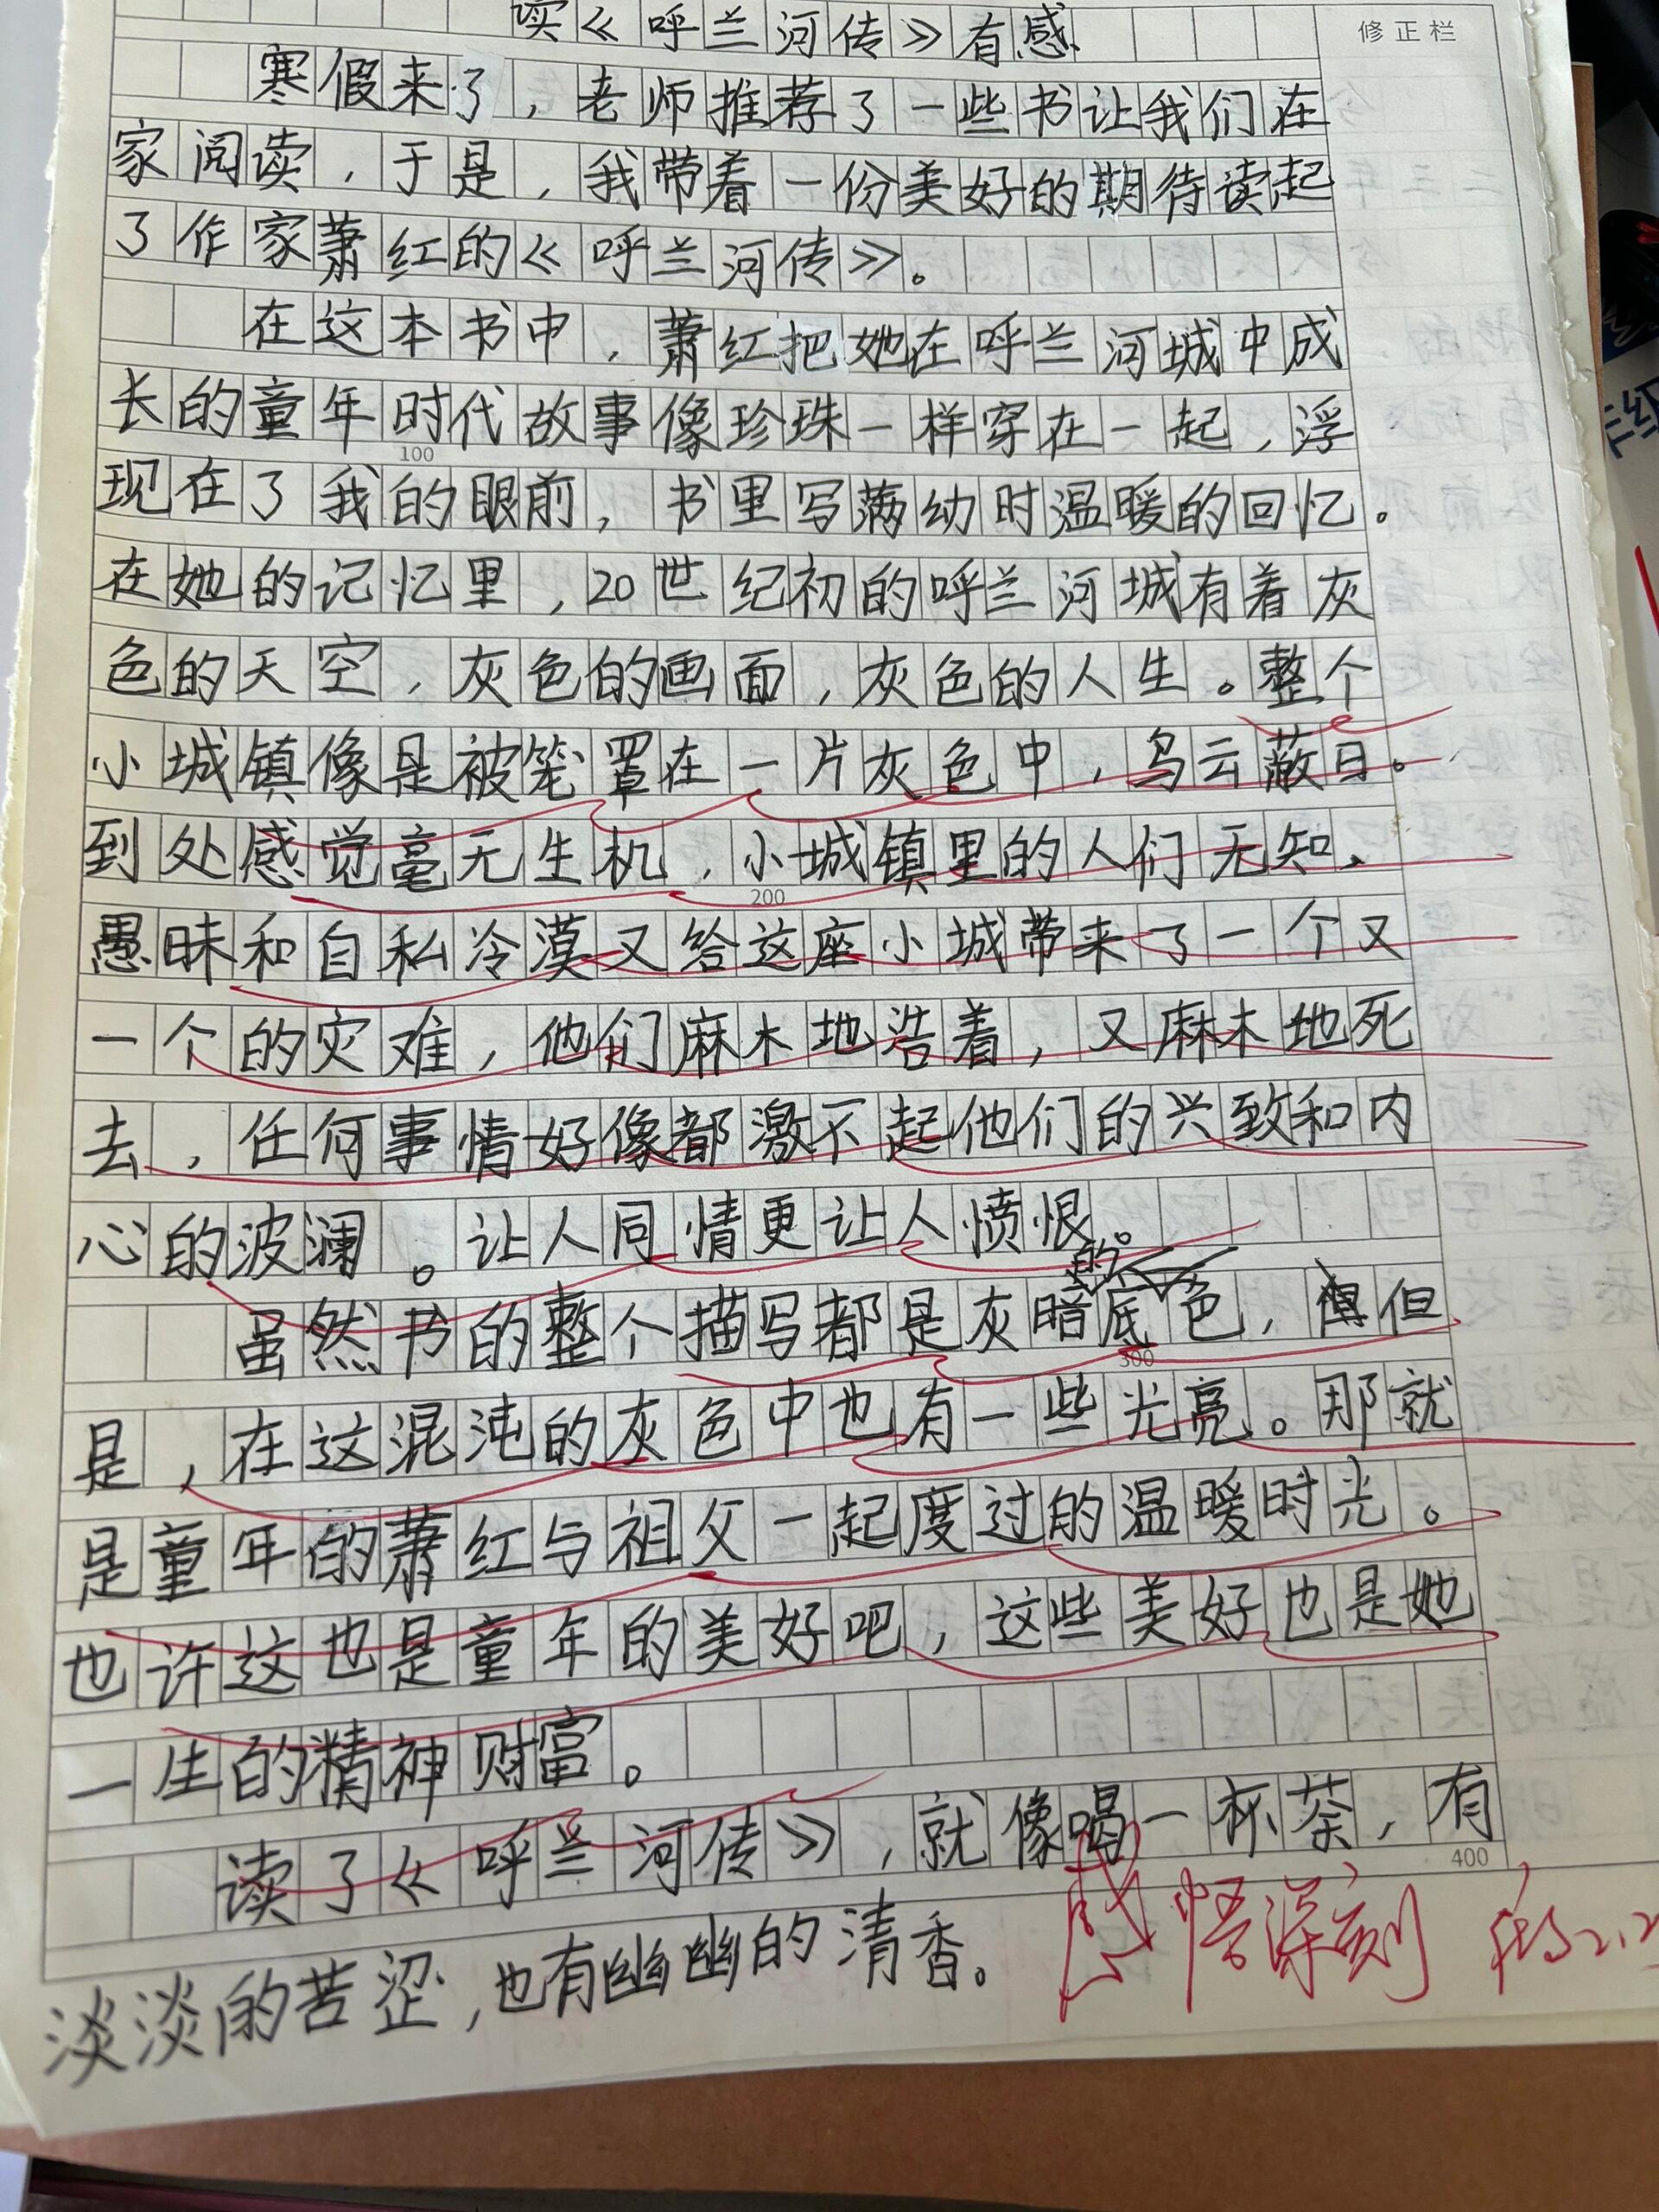 读《呼兰河传》有感
修正栏
寒假来了，老师推荐了一些书让我们在
家阅读，于是，我带着一份美好的期待读起
了作家萧红的《呼兰河传》。
在这本书中，萧红把她在呼兰河城中成
长的童年时代故事像珍珠一样穿在一起，浮
100
现在了我的眼前，书里写满幼时温暖的回忆。
在她的记忆里，20世纪初的呼兰河城有着灰
色的天空，灰色的画面，灰色的人生。整个
小城镇像是被笼罩在一片灰色中，乌云蔽日。
到处感觉毫无生机，小城镇里的人们无知、
200
愚昧和自私冷漠又给这座小城带来了一个又
一个的灾难，他们麻木地活着，又麻木地死
去，任何事情好像都激不起他们的兴致和内
心的波澜。让人同情更让人愤恨。
虽然书的整个描写都是灰暗的底色，但
300
是，在这混沌的灰色中也有一些光亮。那就
是童年的萧红与祖父一起度过的温暖时光。
也许这也是童年的美好吧，这些美好也是她
一生的精神财富。
读了《呼兰河传》，就像喝一杯茶，有
400
淡淡的苦涩，也有幽幽的清香。
感悟深刻